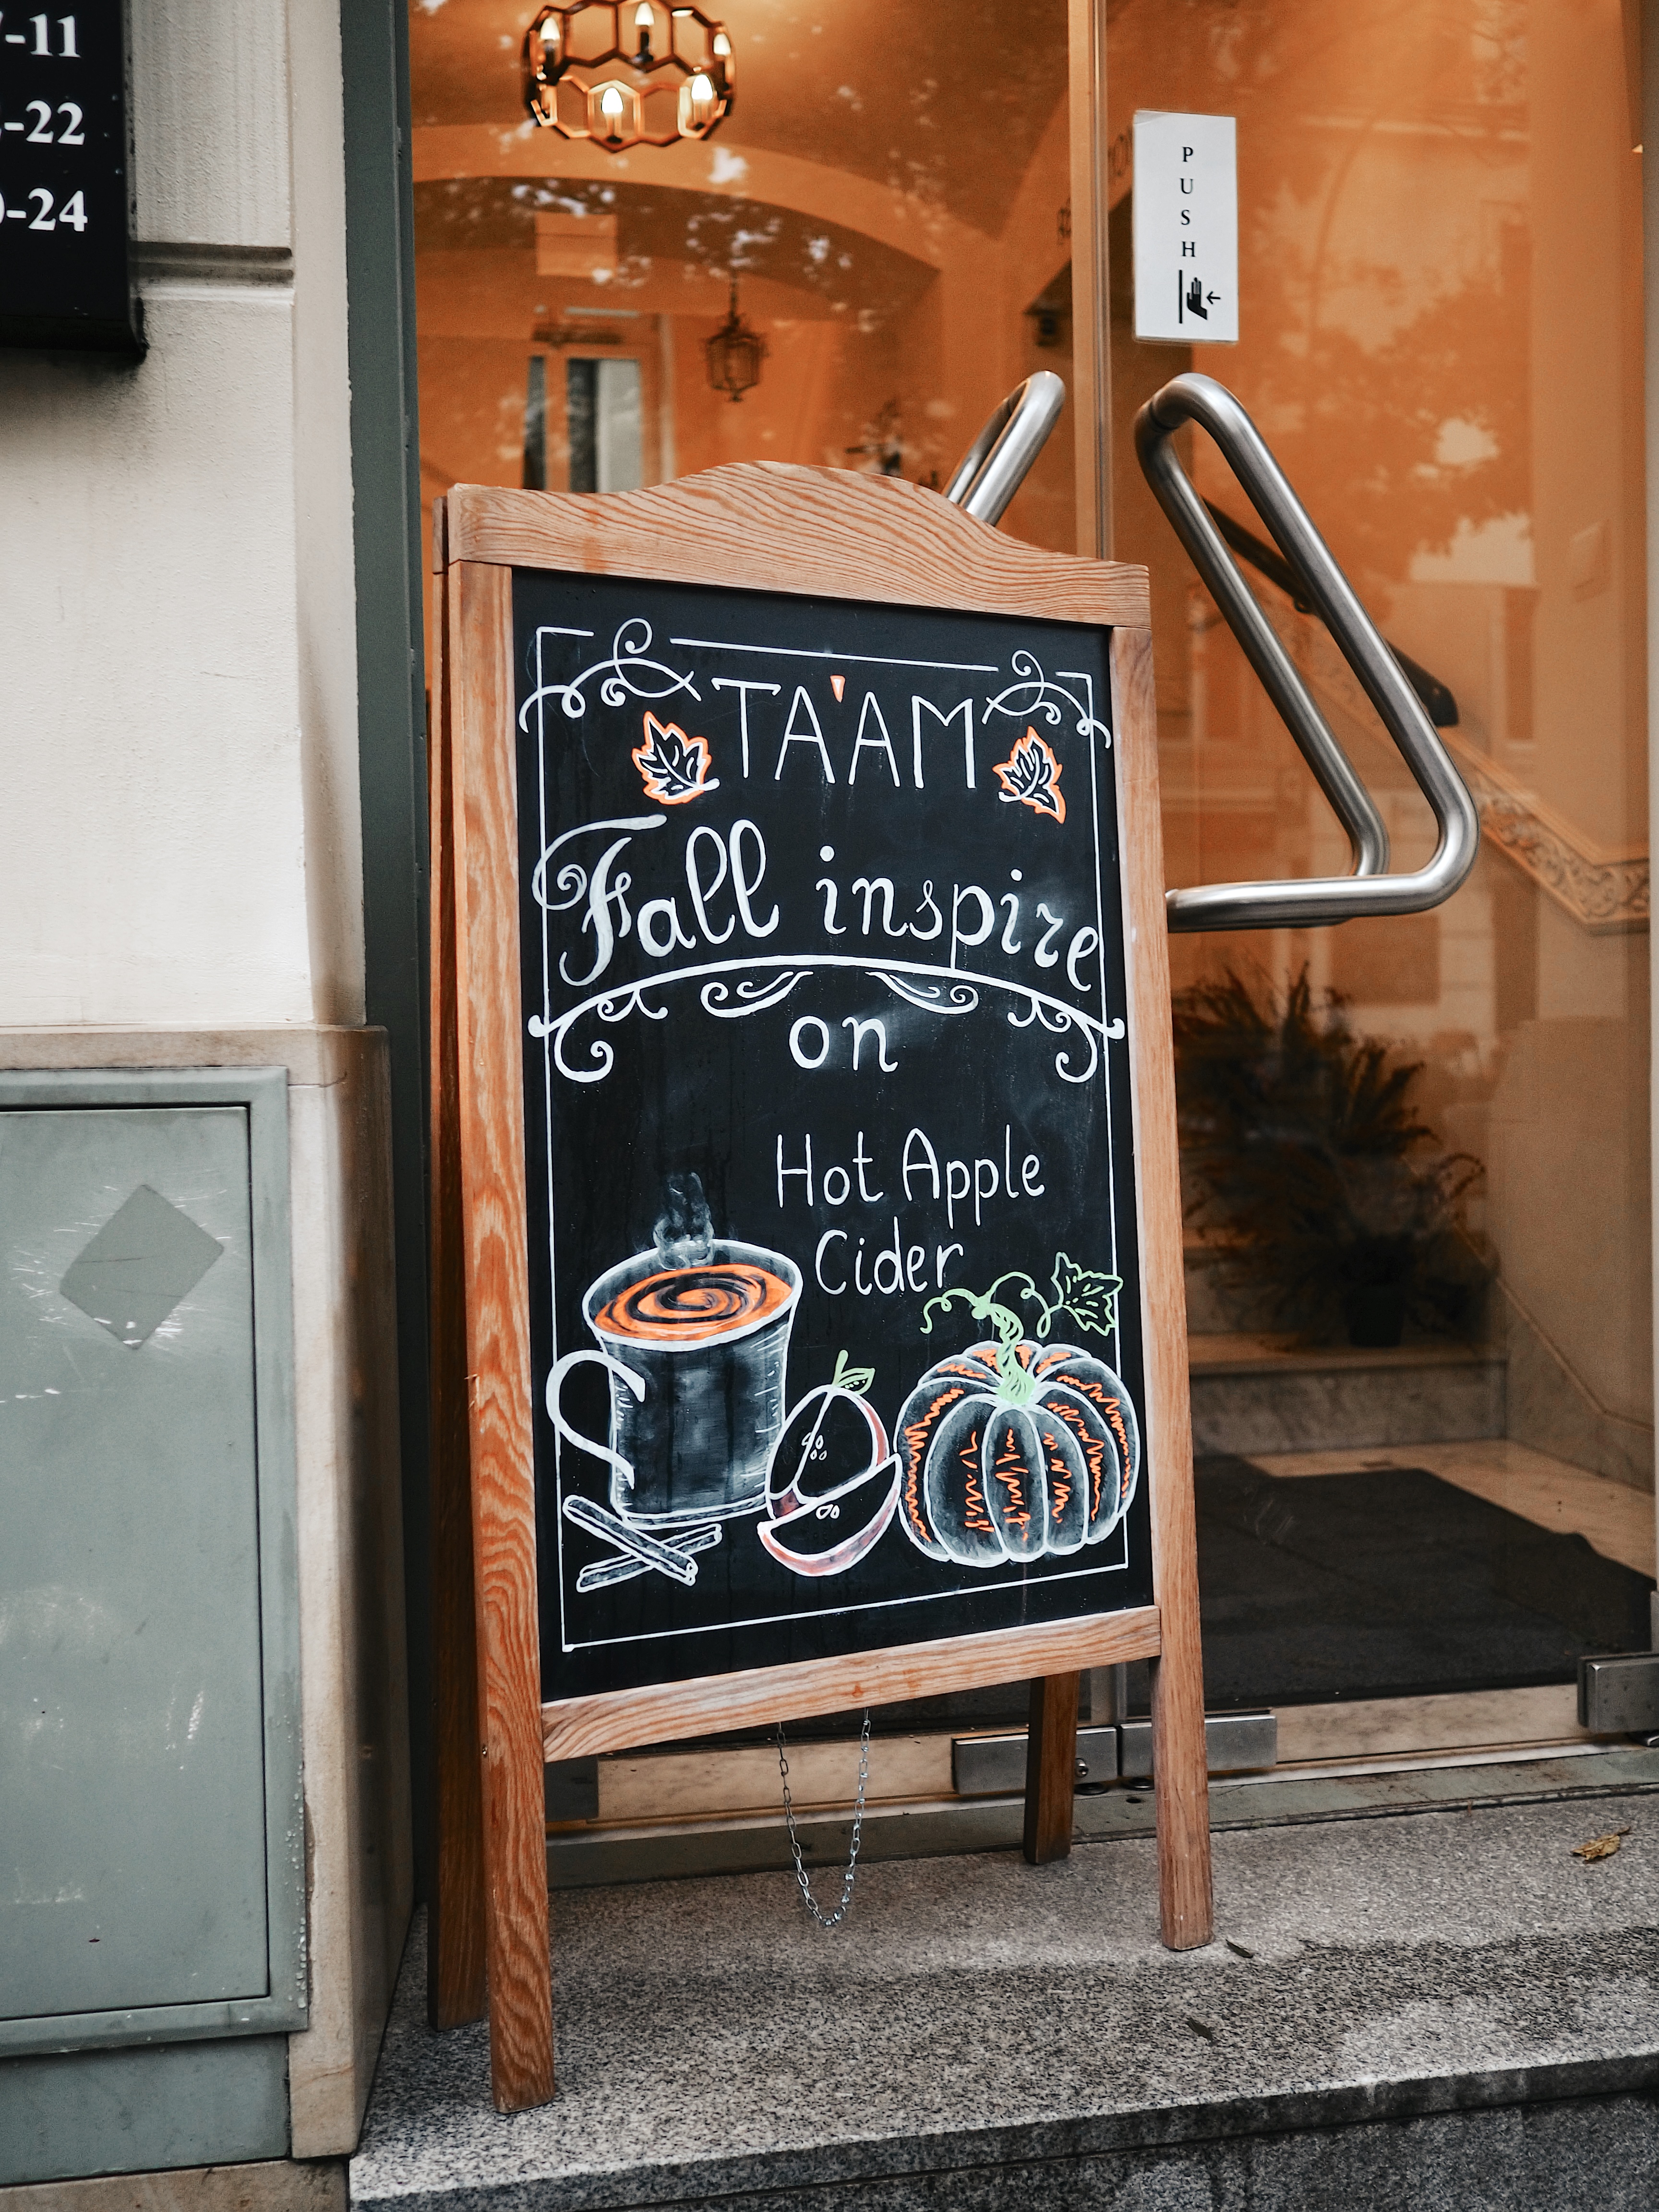 -11
-22
-24
PUSH
TA'AM
Fall inspire
on
Hot Apple
Cider